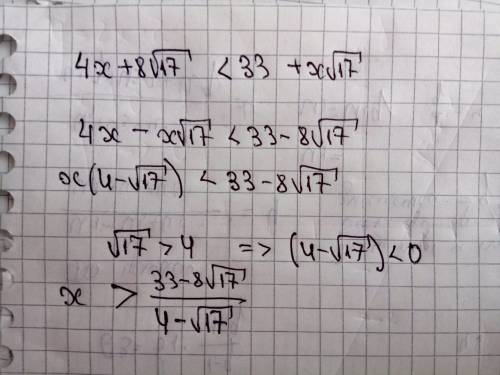 4x + 8√17 < 33 + x√17
4x - x√17 < 33 - 8√17
x(4-√17) < 33 - 8√17
√17 > 4 => (4-√17) < 0
x > (33-8√17)/(4-√17)